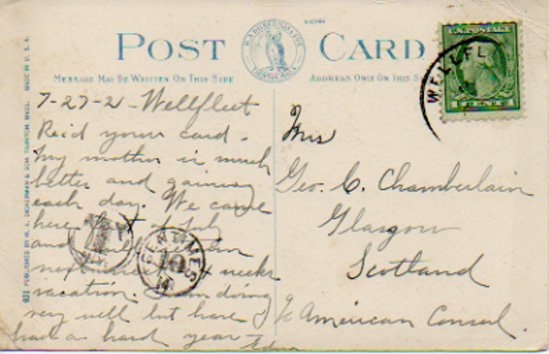 POST CARD
MESSAGE MAY BE WRITTEN ON THIS SIDE
ADDRESS ONLY ON THIS
MADE IN U.S.A.
PUBLISHED BY H. A. DICKERMAN & SON, TAUNTON, MASS.
WELLFL
7-27-21 Wellfleet
Rec'd your card.
My mother is much
better and gaining
each day. We came
here July
and
next 4 weeks
vacation. I am doing
very well but have
had a hard year
Edna
Mrs
Geo. C. Chamberlain
Glasgow
Scotland
c/o American Consul.